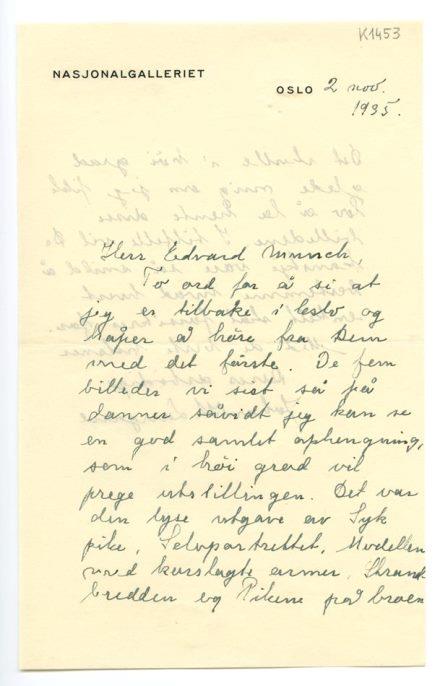 K1453
NASJONALGALLERIET
OSLO 2 nov.
1935.
Herr Edvard Munch,
To ord for å si at
jeg er tilbake i Oslo og
håper å höre fra Dem
med det förste. De fem
billeder vi siet så på
danner såvidt jeg kan se
en god samlet ophengning,
som i höi grad vil
prege utstillingen. Det var
den lyse utgave av Syk
pike, Selvportrettet, Modellen
med korslagte armer, Strand
bredden og Pikene på broen